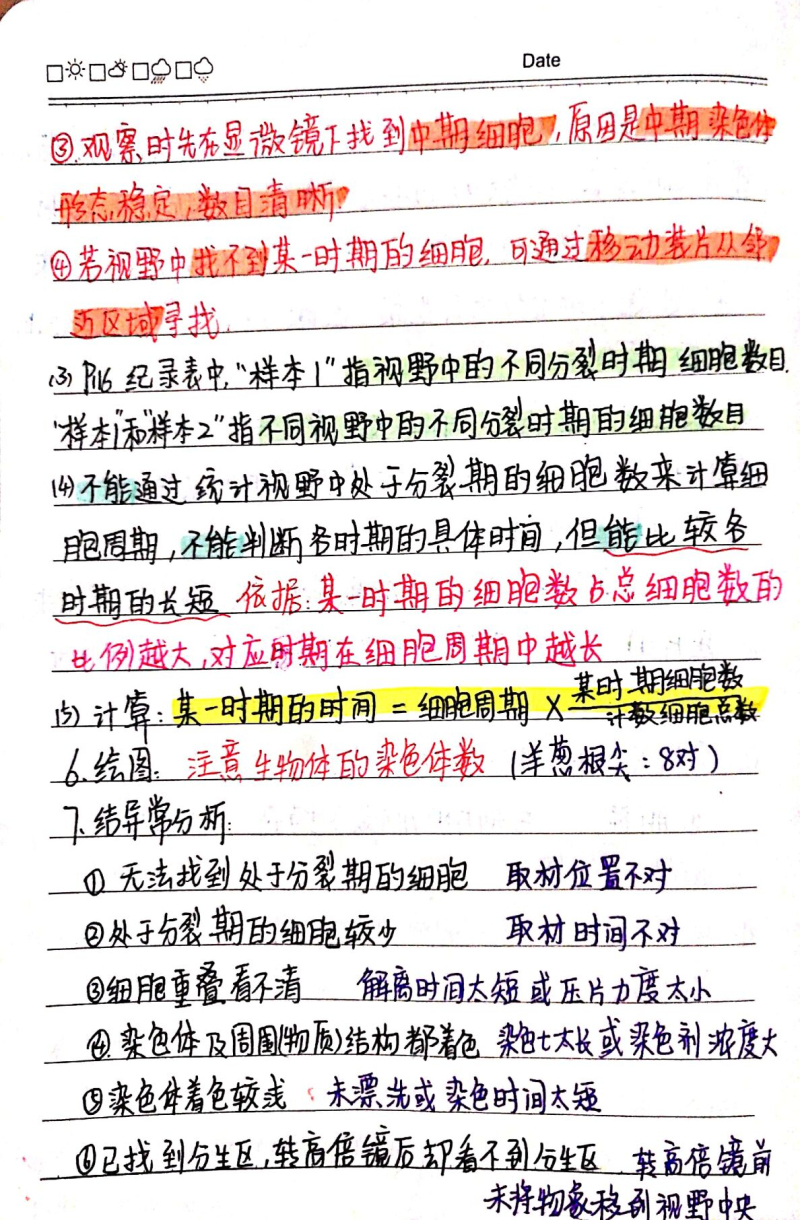 Date
③.观察时先在显微镜下找到中期细胞,原因是中期染色体
形态稳定,数目清晰
④若视野中找不到某一时期的细胞,可通过移动装片从邻
近区域寻找.
(3) P116 纪录表中,"样本1"指视野中的不同分裂时期 细胞数目.
"样本1"和"样本2"指不同视野中的不同分裂时期的细胞数目
(4)不能通过统计视野中处于分裂期的细胞数来计算细
胞周期,不能判断各时期的具体时间,但能比较各
时期的长短 依据:某一时期的细胞数占总细胞数的
比例越大,对应时期在细胞周期中越长
(5) 计算:某一时期的时间 = 细胞周期 × 某时期细胞数/计数细胞总数
6.绘图: 注意生物体的染色体数 (洋葱根尖:8对)
7.结异常分析:
① 无法找到处于分裂期的细胞 取材位置不对
②处于分裂期的细胞较少 取材时间不对
③细胞重叠看不清 解离时间太短或压片力度太小
④.染色体及周围(物质)结构都着色 染色t太长或染色剂浓度大
⑤染色体着色较浅 未漂洗或染色时间太短
⑥已找到分生区,转高倍镜后却看不到分生区 转高倍镜前
未将物象移到视野中央